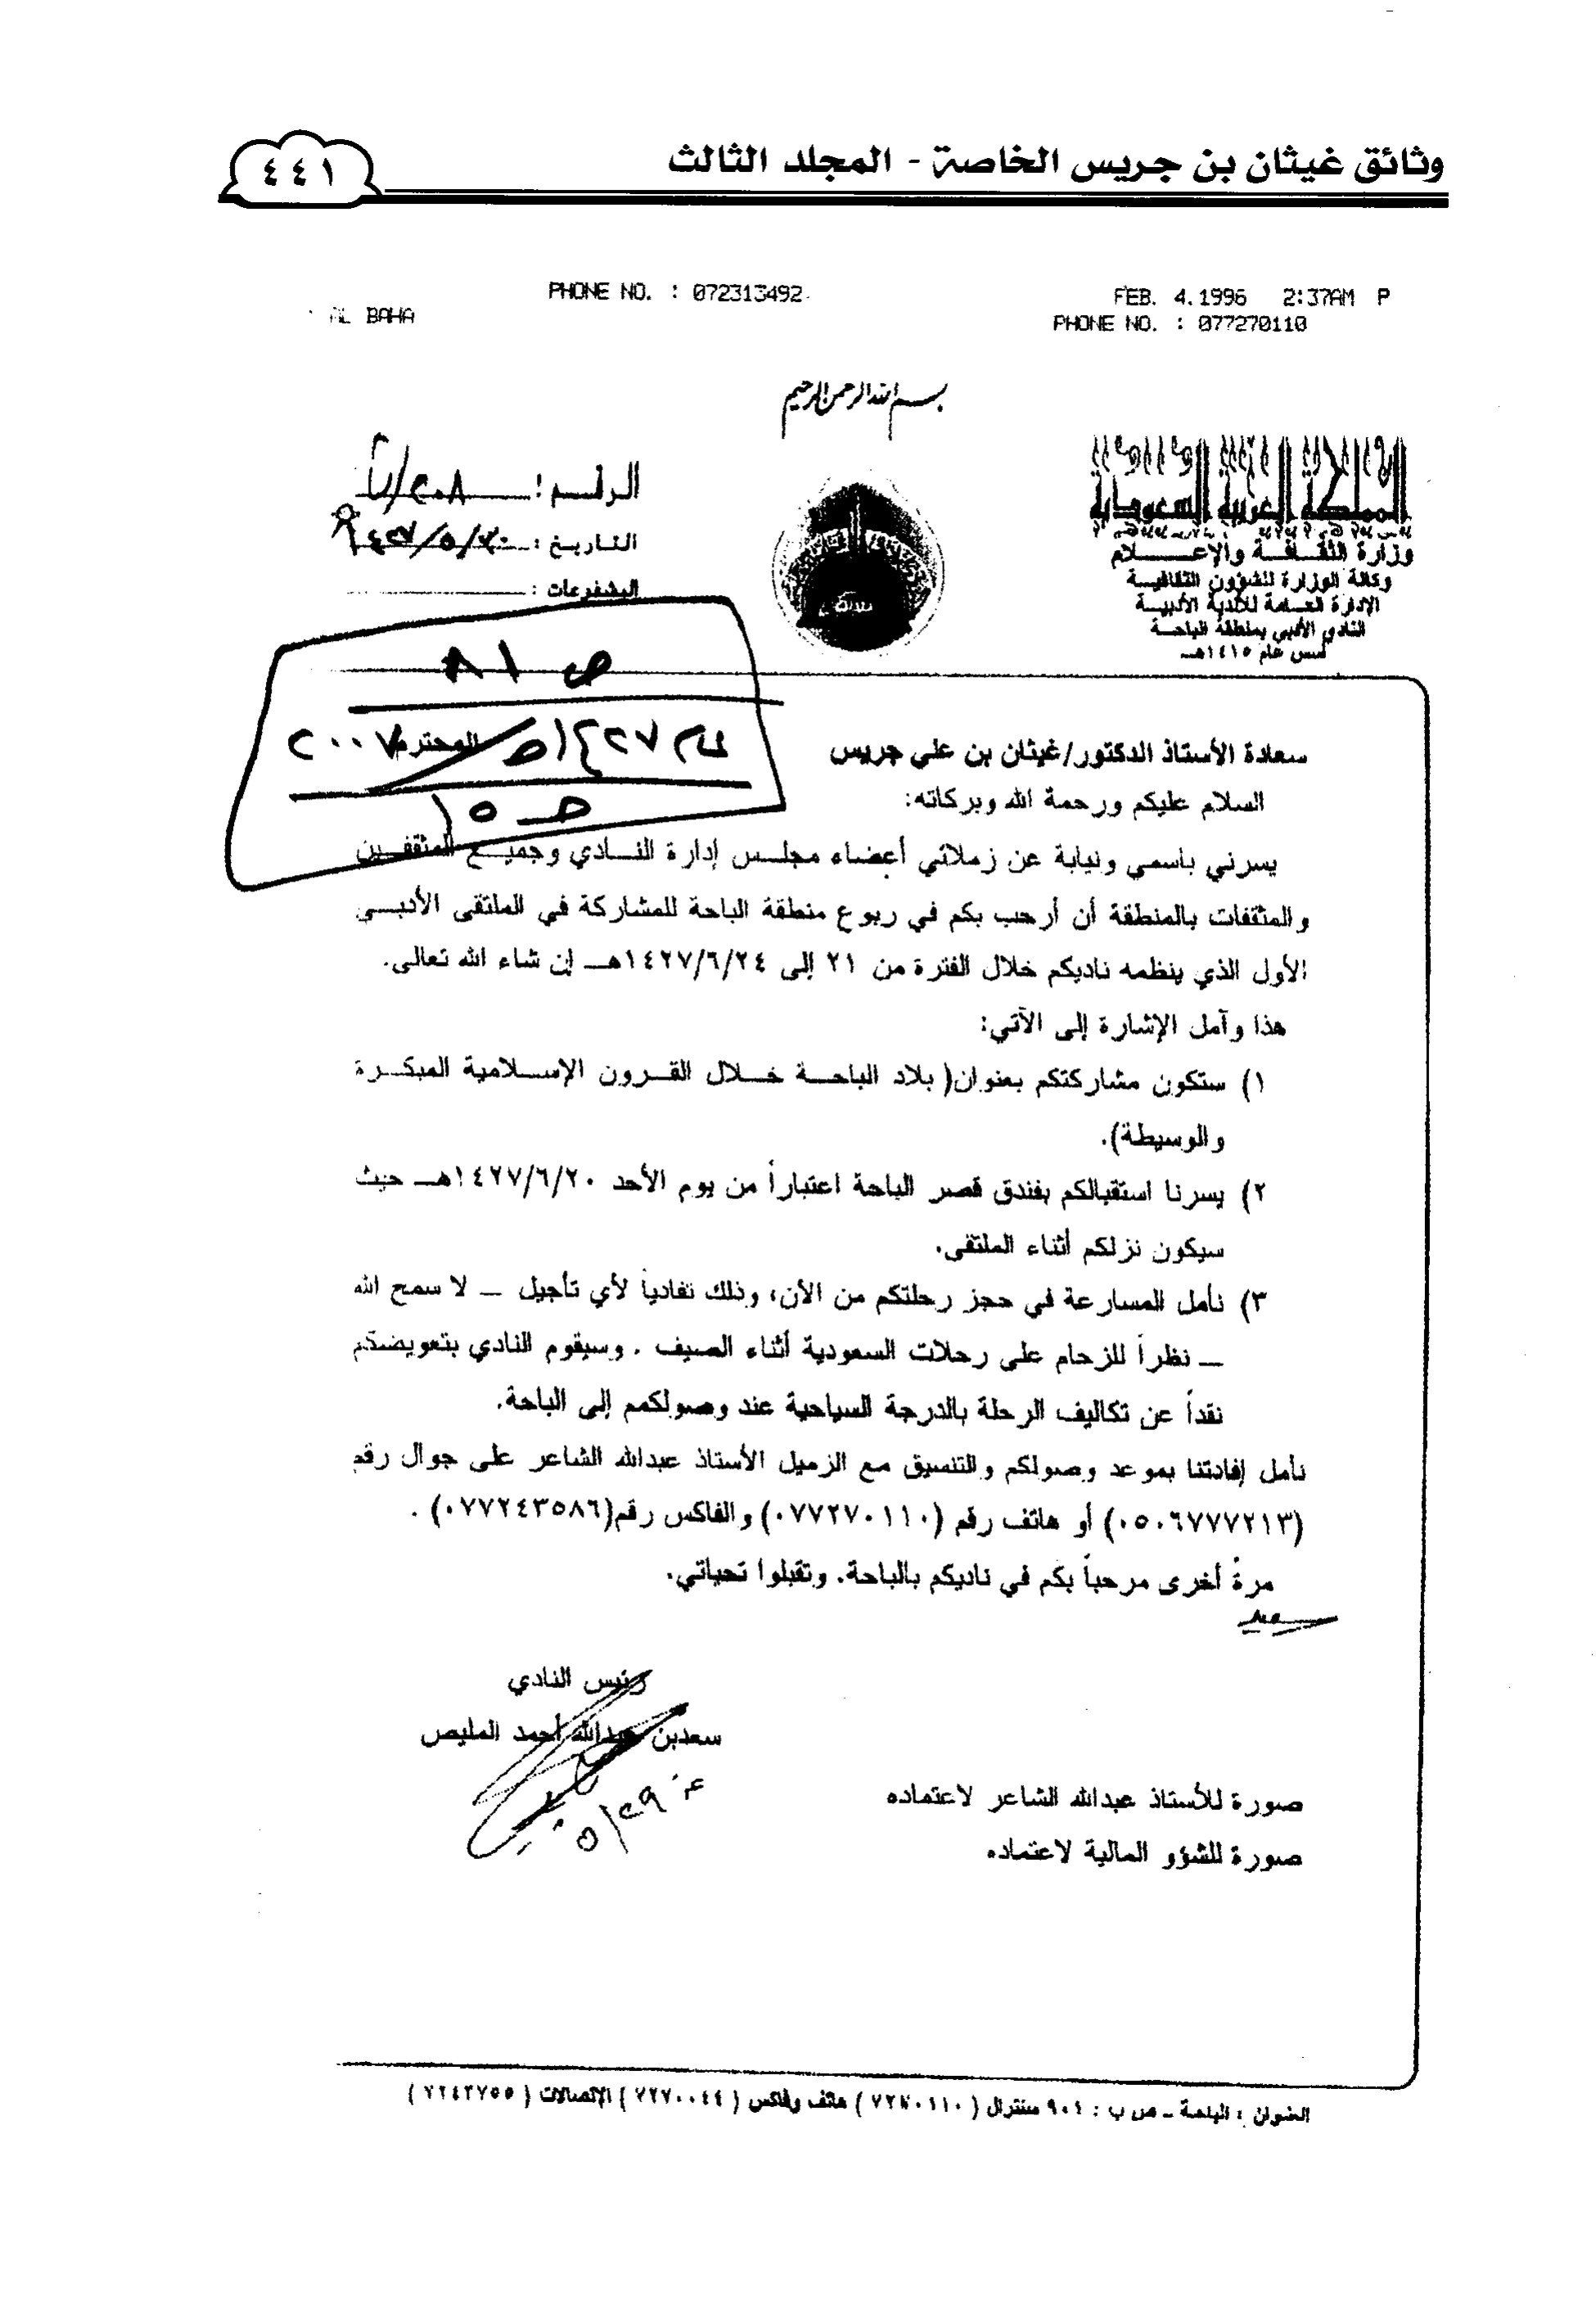 وثائق غيثان بن جريس الخاصة - المجلد الثالث
٤٤١
FEB. 4.1996 2:37AM P
PHONE NO. : 072313492
PHONE NO. : 077270110
AL BAHA
بسم الله الرحمن الرحيم
المملكة العربية السعودية
وزارة الثقافة والإعلام
وكالة الوزارة للشؤون الثقافية
الإدارة العامة للأندية الأدبية
النادي الأدبي بمنطقة الباحة
أسس عام ١٤١٥هـ
الرقم :
التاريخ :
المشفوعات :
ص ٨١
سعادة الأستاذ الدكتور/غيثان بن علي جريس المحترم
السلام عليكم ورحمة الله وبركاته:
يسرني باسمي ونيابة عن زملائي أعضاء مجلس إدارة النادي وجميع المثقفين
والمثقفات بالمنطقة أن أرحب بكم في ربوع منطقة الباحة للمشاركة في الملتقى الأدبي
الأول الذي ينظمه ناديكم خلال الفترة من ٢١ إلى ١٤٢٧/٦/٢٤هـ إن شاء الله تعالى.
هذا وآمل الإشارة إلى الآتي:
١) ستكون مشاركتكم بعنوان( بلاد الباحة خلال القرون الإسلامية المبكرة
والوسيطة).
٢) يسرنا استقبالكم بفندق قصر الباحة اعتباراً من يوم الأحد ١٤٢٧/٦/٢٠هـ حيث
سيكون نزلكم أثناء الملتقى.
٣) نأمل المسارعة في حجز رحلتكم من الآن، وذلك تفادياً لأي تأجيل – لا سمح الله
– نظراً للزحام على رحلات السعودية أثناء الصيف . وسيقوم النادي بتعويضكم
نقداً عن تكاليف الرحلة بالدرجة السياحية عند وصولكمم إلى الباحة.
نأمل إفادتنا بموعد وصولكم والتنسيق مع الزميل الأستاذ عبدالله الشاعر على جوال رقم
(٠٥٠٦٧٧٧٢١٣) أو هاتف رقم (٠٧٧٢٧٠١١٠) والفاكس رقم(٠٧٧٢٤٣٥٨٦) .
مرةً أخرى مرحباً بكم في ناديكم بالباحة. وتقبلوا تحياتي.
رئيس النادي
سعدبن عبدالله أحمد المليص
صورة للأستاذ عبدالله الشاعر لاعتماده
صورة للشؤو المالية لاعتماده
العنوان : الباحة - ص ب : ٩٠١ سنترال ( ٧٢٧٠١١٠ ) هاتف وفاكس ( ٧٢٧٠٠٤٤ ) الإتصالات ( ٧٢٤٢٧٥٥ )